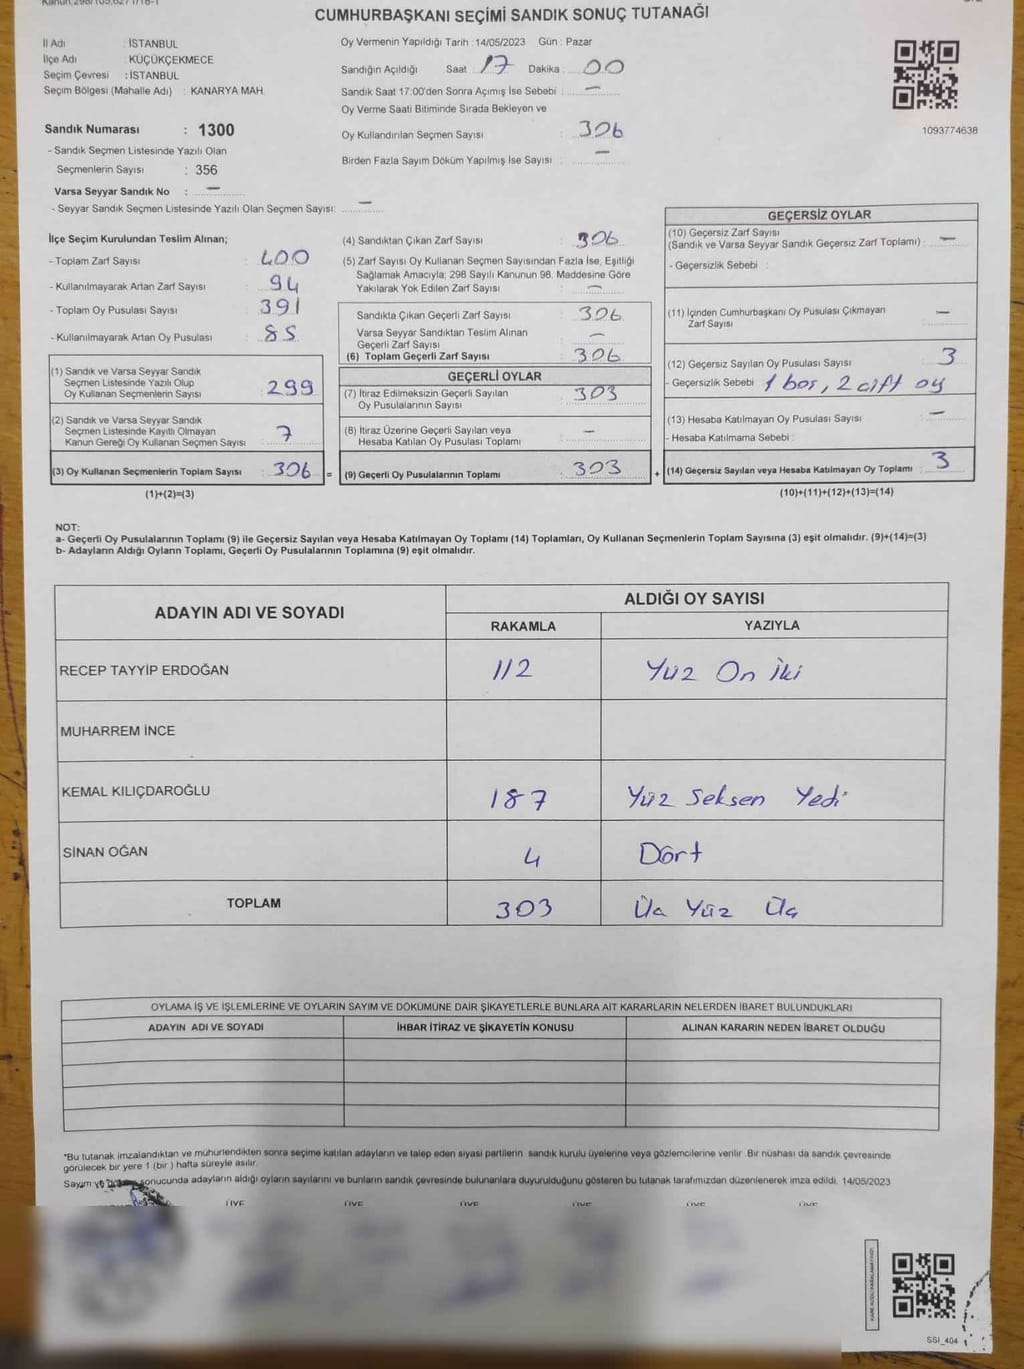 CUMHURBAŞKANI SEÇİMİ SANDIK SONUÇ TUTANAĞI
İl Adı : İSTANBUL
İlçe Adı : KÜÇÜKÇEKMECE
Seçim Çevresi : İSTANBUL
Seçim Bölgesi (Mahalle Adı) : KANARYA MAH.
Sandık Numarası : 1300
- Sandık Seçmen Listesinde Yazılı Olan
Seçmenlerin Sayısı : 356
Varsa Seyyar Sandık No : —
- Seyyar Sandık Seçmen Listesinde Yazılı Olan Seçmen Sayısı: —
Oy Vermenin Yapıldığı Tarih : 14/05/2023 Gün : Pazar
Sandığın Açıldığı Saat 17 Dakika : 00
Sandık Saat 17:00'den Sonra Açımış İse Sebebi : —
Oy Verme Saati Bitiminde Sırada Bekleyen ve
Oy Kullandırılan Seçmen Sayısı : 306
Birden Fazla Sayım Döküm Yapılmış İse Sayısı : —
1093774638
İlçe Seçim Kurulundan Teslim Alınan;
- Toplam Zarf Sayısı : 400
- Kullanılmayarak Artan Zarf Sayısı : 94
- Toplam Oy Pusulası Sayısı : 391
- Kullanılmayarak Artan Oy Pusulası : 85
(1) Sandık ve Varsa Seyyar Sandık
Seçmen Listesinde Yazılı Olup
Oy Kullanan Seçmenlerin Sayısı : 299
(2) Sandık ve Varsa Seyyar Sandık
Seçmen Listesinde Kayıtlı Olmayan
Kanun Gereği Oy Kullanan Seçmen Sayısı : 7
(3) Oy Kullanan Seçmenlerin Toplam Sayısı : 306 =
(1)+(2)=(3)
(4) Sandıktan Çıkan Zarf Sayısı : 306
(5) Zarf Sayısı Oy Kullanan Seçmen Sayısından Fazla İse, Eşitliği
Sağlamak Amacıyla; 298 Sayılı Kanunun 98. Maddesine Göre
Yakılarak Yok Edilen Zarf Sayısı : —
Sandıkta Çıkan Geçerli Zarf Sayısı : 306
Varsa Seyyar Sandıktan Teslim Alınan
Geçerli Zarf Sayısı : —
(6) Toplam Geçerli Zarf Sayısı : 306
GEÇERLİ OYLAR
(7) İtiraz Edilmeksizin Geçerli Sayılan
Oy Pusulalarının Sayısı : 303
(8) İtiraz Üzerine Geçerli Sayılan veya
Hesaba Katılan Oy Pusulası Toplamı : —
(9) Geçerli Oy Pusulalarının Toplamı : 303 +
GEÇERSİZ OYLAR
(10) Geçersiz Zarf Sayısı
(Sandık ve Varsa Seyyar Sandık Geçersiz Zarf Toplamı) : —
- Geçersizlik Sebebi :
(11) İçinden Cumhurbaşkanı Oy Pusulası Çıkmayan
Zarf Sayısı : —
(12) Geçersiz Sayılan Oy Pusulası Sayısı : 3
- Geçersizlik Sebebi : 1 boş, 2 çift oy
(13) Hesaba Katılmayan Oy Pusulası Sayısı : —
- Hesaba Katılmama Sebebi :
(14) Geçersiz Sayılan veya Hesaba Katılmayan Oy Toplamı : 3
(10)+(11)+(12)+(13)=(14)
NOT:
a- Geçerli Oy Pusulalarının Toplamı (9) ile Geçersiz Sayılan veya Hesaba Katılmayan Oy Toplamı (14) Toplamları, Oy Kullanan Seçmenlerin Toplam Sayısına (3) eşit olmalıdır. (9)+(14)=(3)
b- Adayların Aldığı Oyların Toplamı, Geçerli Oy Pusulalarının Toplamına (9) eşit olmalıdır.
ADAYIN ADI VE SOYADI ALDIĞI OY SAYISI
RAKAMLA YAZIYLA
RECEP TAYYİP ERDOĞAN 112 Yüz On İki
MUHARREM İNCE
KEMAL KILIÇDAROĞLU 187 Yüz Seksen Yedi
SİNAN OĞAN 4 Dört
TOPLAM 303 Üç Yüz Üç
OYLAMA İŞ VE İŞLEMLERİNE VE OYLARIN SAYIM VE DÖKÜMÜNE DAİR ŞİKAYETLERLE BUNLARA AİT KARARLARIN NELERDEN İBARET BULUNDUKLARI
ADAYIN ADI VE SOYADI İHBAR İTİRAZ VE ŞİKAYETİN KONUSU ALINAN KARARIN NEDEN İBARET OLDUĞU
*Bu tutanak imzalandıktan ve mühürlendikten sonra seçime katılan adayların ve talep eden siyasi partilerin sandık kurulu üyelerine veya gözlemcilerine verilir. Bir nüshası da sandık çevresinde
görülecek bir yere 1 (bir ) hafta süreyle asılır.
Sayım ve sonucunda adayların aldığı oyların sayılarını ve bunların sandık çevresinde bulunanlara duyurulduğunu gösteren bu tutanak tarafımızdan düzenlenerek imza edildi. 14/05/2023
ÜYE ÜYE ÜYE ÜYE ÜYE ÜYE
SSI_404